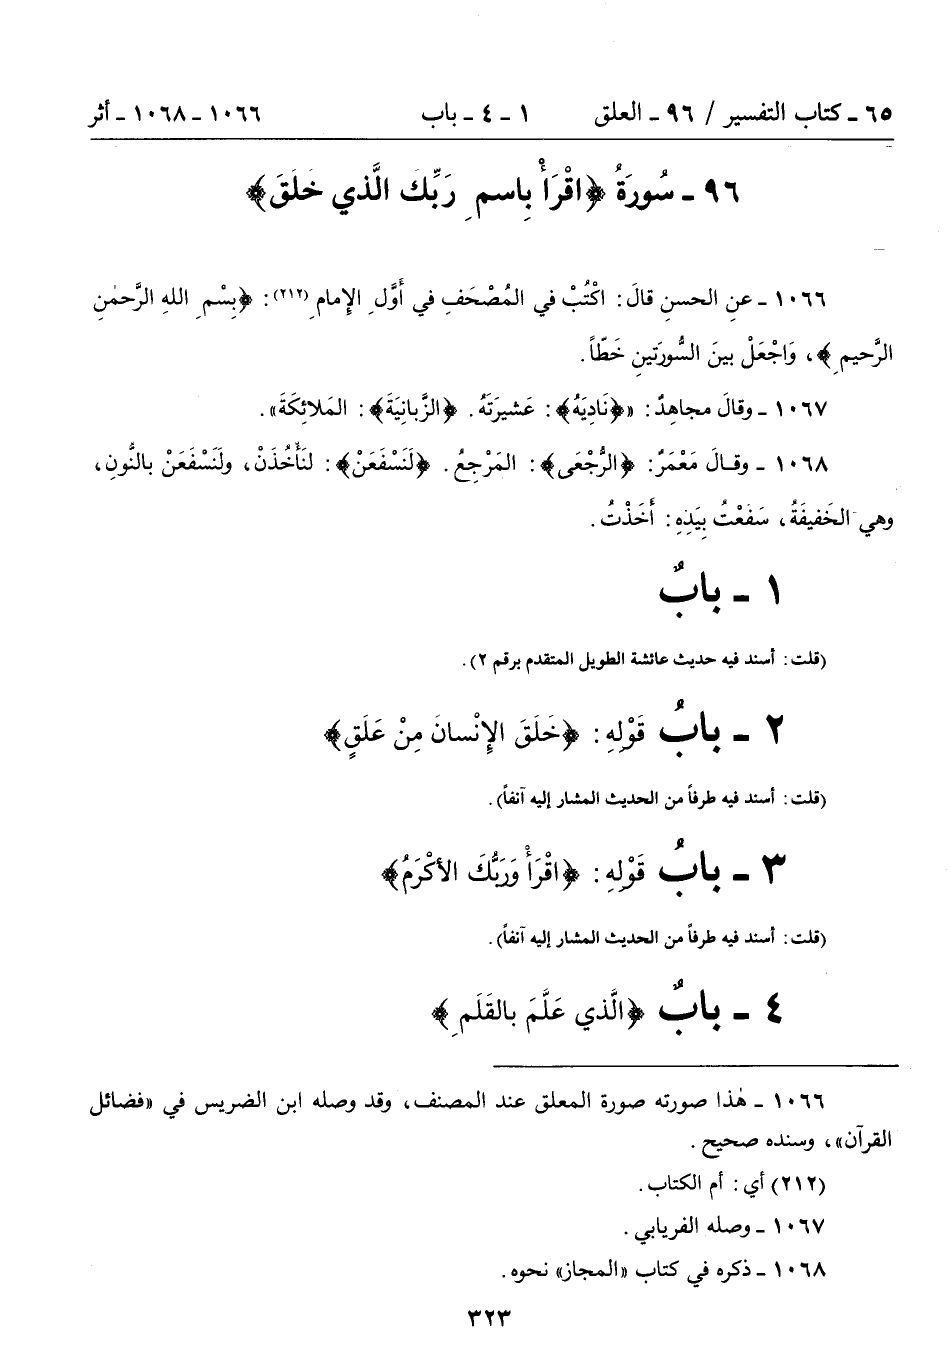 ٦٥ ـ كتاب التفسير / ٩٦ ـ العلق ١ ـ ٤ ـ باب ١٠٦٦ ـ ١٠٦٨ ـ أثر
٩٦ ـ سُورَةُ ﴿اقْرَأْ بِاسمِ رَبِّكَ الَّذي خَلَقَ﴾
١٠٦٦ ـ عنِ الحسنِ قالَ: اكْتُبْ في المُصْحَفِ في أوَّلِ الإمامِ (٢١٢): ﴿بِسْمِ اللهِ الرَّحمٰنِ
الرَّحيمِ﴾، وَاجْعَلْ بينَ السُّورَتينِ خَطّاً.
١٠٦٧ ـ وقالَ مجاهِدٌ: «﴿نَادِيَهُ﴾: عَشيرَتَهُ. ﴿الزَّبانِيَةَ﴾: المَلائِكَةَ».
١٠٦٨ ـ وقالَ مَعْمَرٌ: ﴿الرُّجْعَى﴾: المَرْجِعُ. ﴿لَنَسْفَعَنْ﴾: لنَأْخُذَنْ، ولَنَسْفَعَنْ بالنُّونِ،
وهي الخَفيفَةُ، سَفَعْتُ بِيَدِهِ: أَخَذْتُ.
١ ـ بابٌ
(قلت: أسند فيه حديث عائشة الطويل المتقدم برقم ٢).
٢ ـ بابُ قَوْلِهِ: ﴿خَلَقَ الإنْسانَ مِنْ عَلَقٍ﴾
(قلت: أسند فيه طرفاً من الحديث المشار إليه آنفاً).
٣ ـ بابُ قَوْلِهِ: ﴿اقْرَأْ وَرَبُّكَ الأكْرَمُ﴾
(قلت: أسند فيه طرفاً من الحديث المشار إليه آنفاً).
٤ ـ بابٌ ﴿الَّذي عَلَّمَ بالقَلَمِ﴾
١٠٦٦ ـ هٰذا صورته صورة المعلق عند المصنف، وقد وصله ابن الضريس في «فضائل
القرآن»، وسنده صحيح.
(٢١٢) أي: أم الكتاب.
١٠٦٧ ـ وصله الفريابي.
١٠٦٨ ـ ذكره في كتاب «المجاز» نحوه.
٣٢٣